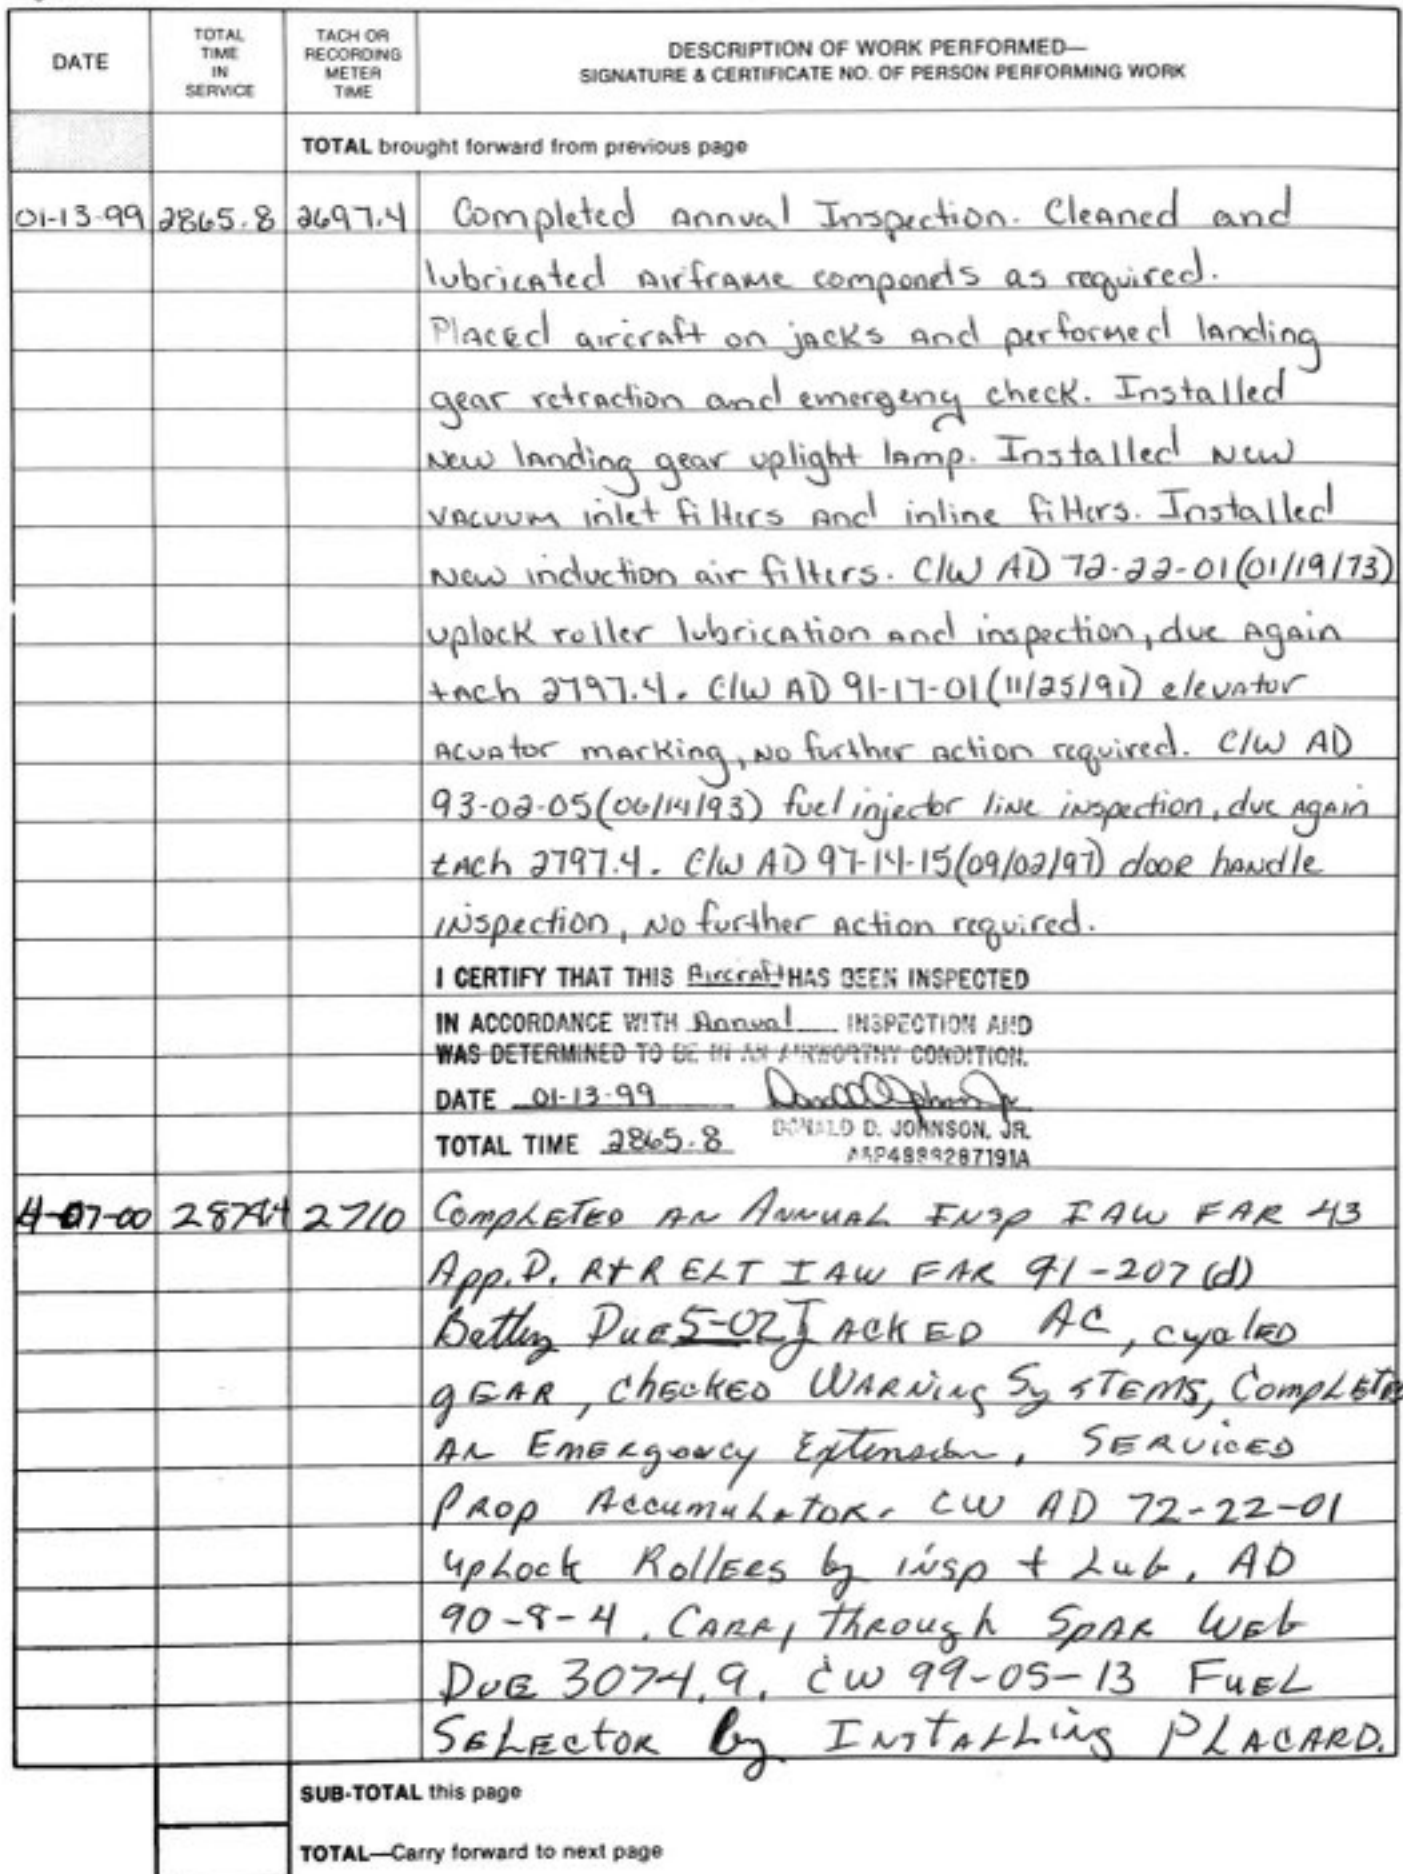 DATE
TOTAL TIME IN SERVICE
TACH OR RECORDING METER TIME
DESCRIPTION OF WORK PERFORMED—
SIGNATURE & CERTIFICATE NO. OF PERSON PERFORMING WORK
TOTAL brought forward from previous page
01-13-99 2865.8 2697.4 Completed Annual Inspection. Cleaned and
lubricated Airframe componets as required.
Placed aircraft on jacks and performed landing
gear retraction and emergeny check. Installed
New landing gear uplight lamp. Installed New
vacuum inlet filters and inline filters. Installed
New induction air filters. C/W AD 72-22-01(01/19/73)
uplock roller lubrication and inspection, due Again
tach 2797.4. C/W AD 91-17-01(11/25/91) elevator
Acuator marking, No further Action required. C/W AD
93-02-05(06/14/93) fuel injector line inspection, due Again
tach 2797.4. C/W AD 97-14-15(09/02/97) door handle
inspection, No further Action required.
I CERTIFY THAT THIS Aircraft HAS BEEN INSPECTED
IN ACCORDANCE WITH Annual INSPECTION AND
WAS DETERMINED TO BE IN AN AIRWORTHY CONDITION.
DATE 01-13-99
DONALD D. JOHNSON, JR.
TOTAL TIME 2865.8
4-07-00 2710 COMPLETED AN ANNUAL INSP IAW FAR 43
App. D. R+R ELT IAW FAR 91-207(d)
Battery Due 5-02 JACKED AC, cycled
gEAR, CHECKED WARNING SySTEMS, COMPLETED
AN EMERgency Extension, SERVICED
PROP Accumulator. CW AD 72-22-01
upLock RollERS by insp + Lub, AD
90-8-4. CARRy THROUGH SPAR WEb
DUE 3074.9. CW 99-05-13 FUEL
SELECTOR by INSTALLING PLACARD.
SUB-TOTAL this page
TOTAL—Carry forward to next page